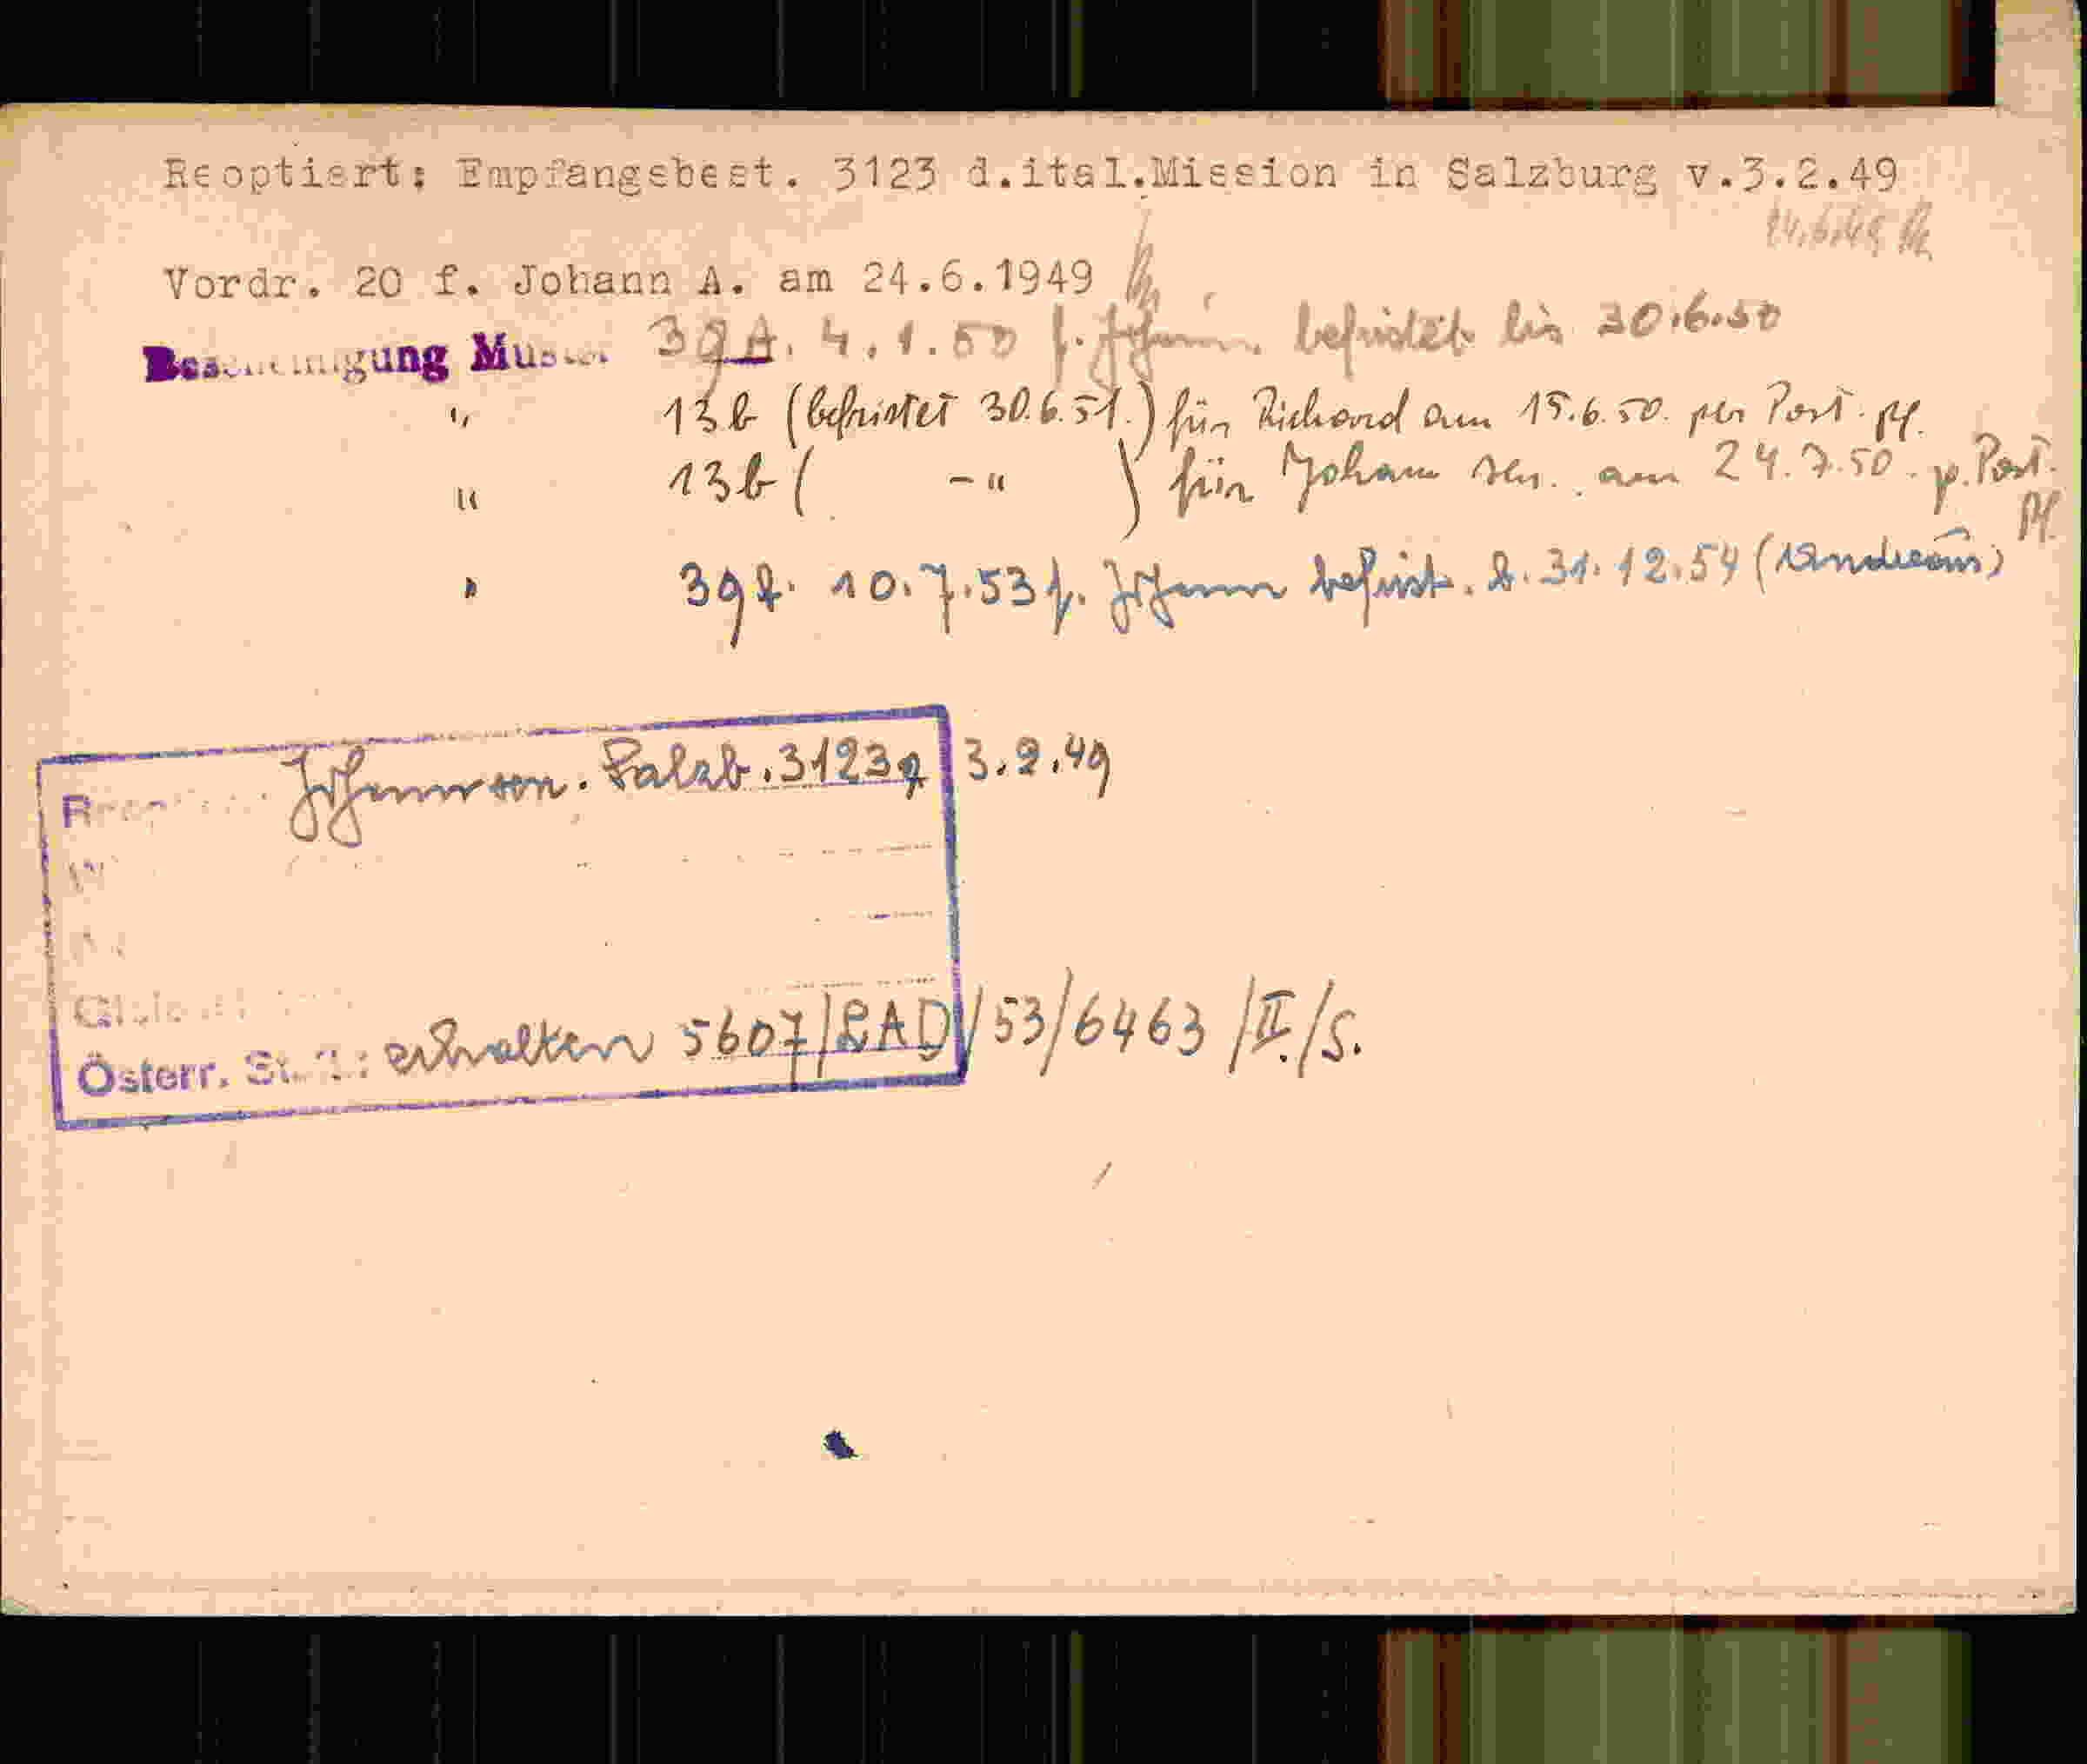 Reoptiert: Empfangsbest. 3123 d.ital.Mission in Salzburg v.3.2.49
24.6.49
Vordr. 20 f. Johann A. am 24.6.1949
Bescheinigung Muster 39A. 4.1.50 f. Johann befristet bis 30.6.50
" 13b (befristet 30.6.51.) für Richard am 15.6.50. per Post. Pf.
" 13b ( -" ) für Johann sen. am 24.7.50. p. Post. Pf.
" 39f. 10.7.53 f. Johann befrist. b. 31.12.54
Johann sen. Salzb. 3123 3.2.49
Österr. St. erhalten 5607/LAD/53/6463/II./S.